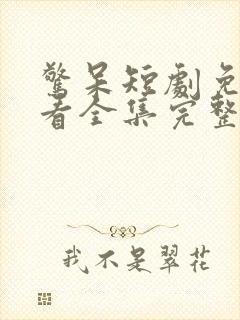 驚呆短劇免
看全集完整
我不是翠花